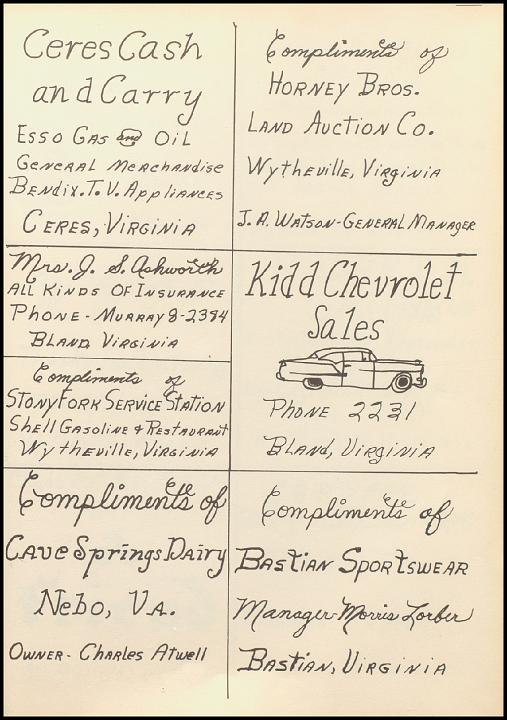 Ceres Cash
and Carry
Esso Gas and Oil
General Merchandise
Bendix.T.V. Appliances
Ceres, Virginia
Compliments of
Horney Bros.
Land Auction Co.
Wytheville, Virginia
J.A. Watson-General Manager
Mrs. J. S. Ashworth
All Kinds Of Insurance
Phone - Murray 8-2394
Bland, Virginia
Kidd Chevrolet
Sales
Phone 2231
Bland, Virginia
Compliments of
Stony Fork Service Station
Shell Gasoline & Restaurant
Wytheville, Virginia
Compliments of
Cave Springs Dairy
Nebo, Va.
Owner - Charles Atwell
Compliments of
Bastian Sportswear
Manager-Morris Lorber
Bastian, Virginia